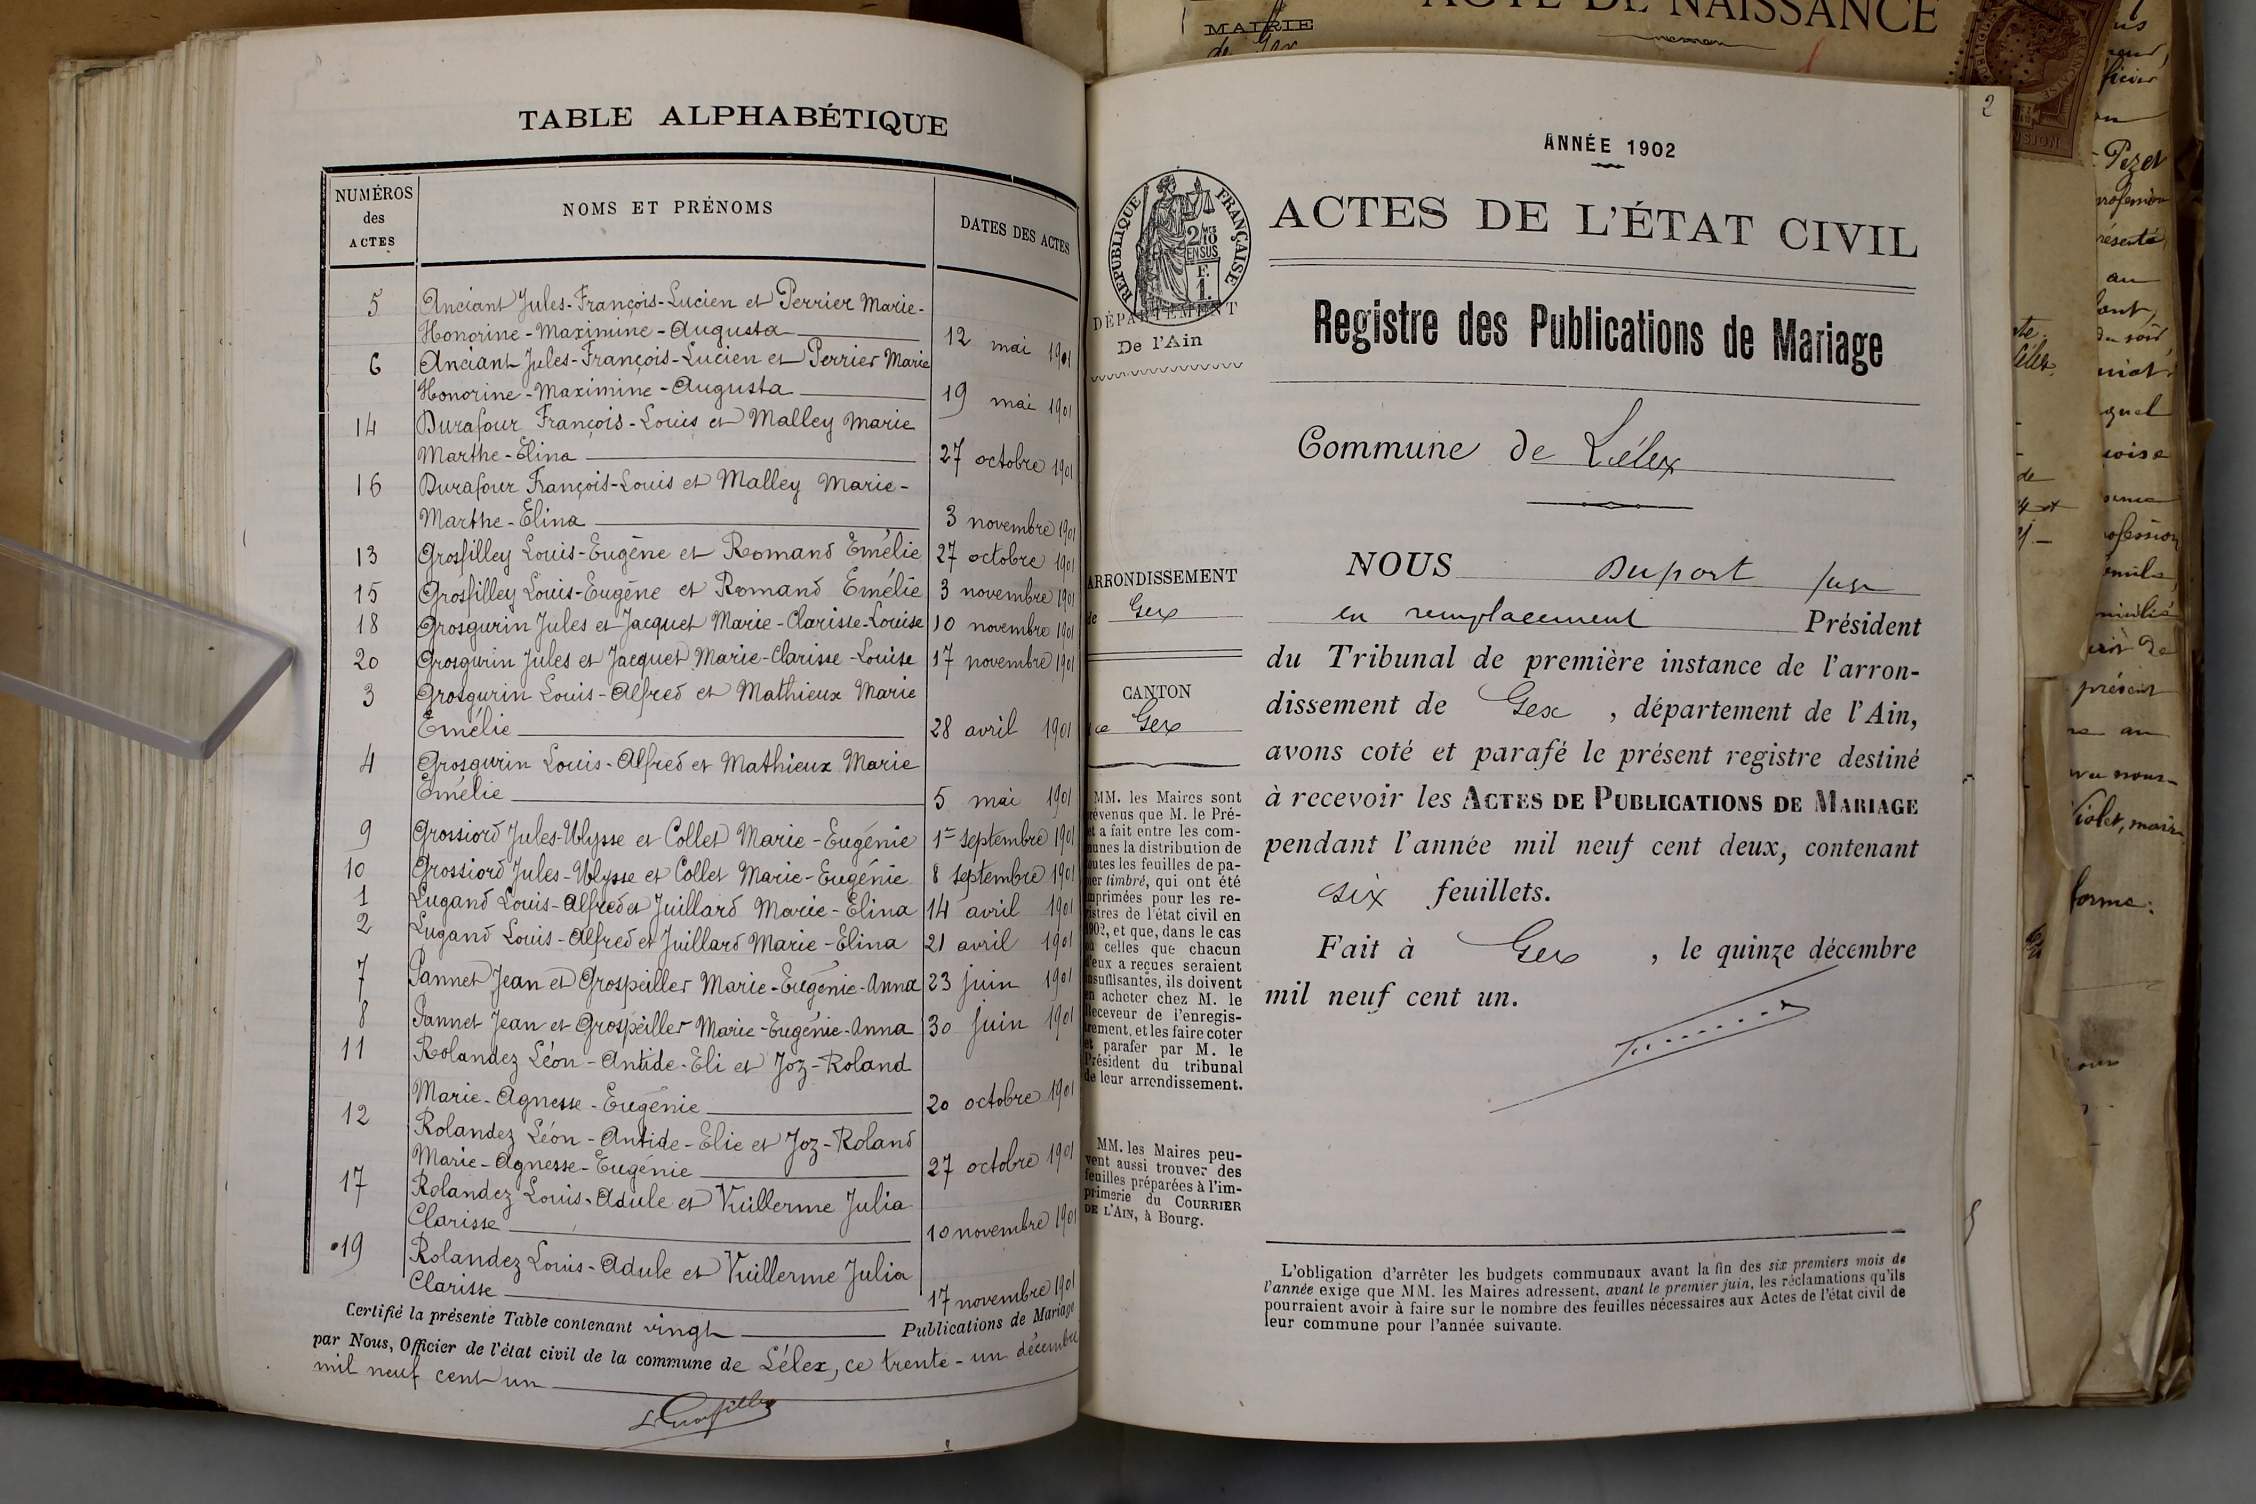 TABLE ALPHABÉTIQUE
NUMÉROS des ACTES
NOMS ET PRÉNOMS
DATES DES ACTES
5 Anciant Jules-François-Lucien et Perrier Marie-
Honorine-Maximine-Augusta 12 mai 1901
6 Anciant Jules-François-Lucien et Perrier Marie
Honorine-Maximine-Augusta 19 mai 1901
14 Durafour François-Louis et Malley Marie
Marthe-Elina 27 octobre 1901
16 Durafour François-Louis et Malley Marie-
Marthe-Elina 3 novembre 1901
13 Grosfilley Louis-Eugène et Romand Emélie 27 octobre 1901
15 Grosfilley Louis-Eugène et Romand Emélie 3 novembre 1901
18 Grosgurin Jules et Jacquet Marie-Clarisse-Louise 10 novembre 1901
20 Grosgurin Jules et Jacquet Marie-Clarisse-Louise 17 novembre 1901
3 Grosgurin Louis-Alfred et Mathieux Marie
Emélie 28 avril 1901
4 Grosgurin Louis-Alfred et Mathieux Marie
Emélie 5 mai 1901
9 Grossiord Jules-Ulysse et Collet Marie-Eugénie 1er septembre 1901
10 Grossiord Jules-Ulysse et Collet Marie-Eugénie 8 septembre 1901
1 Lugand Louis-Alfred et Juillard Marie-Elina 14 avril 1901
2 Lugand Louis-Alfred et Juillard Marie-Elina 21 avril 1901
7 Pannet Jean et Grospeiller Marie-Eugénie-Anna 23 juin 1901
8 Pannet Jean et Grospeiller Marie-Eugénie-Anna 30 juin 1901
11 Rolandez Léon-Antide-Eli et Joz-Roland
Marie-Agnesse-Eugénie 20 octobre 1901
12 Rolandez Léon-Antide-Elie et Joz-Roland
Marie-Agnesse-Eugénie 27 octobre 1901
17 Rolandez Louis-Adule et Vuillerme Julia
Clarisse 10 novembre 1901
19 Rolandez Louis-Adule et Vuillerme Julia
Clarisse 17 novembre 1901
Certifié la présente Table contenant vingt Publications de Mariage
par Nous, Officier de l'état civil de la commune de Lélex, ce trente-un décembre
mil neuf cent un
L Grosfilley
MAIRIE
de Gex
ACTE DE NAISSANCE
2
ANNÉE 1902
RÉPUBLIQUE FRANÇAISE
2/10 EN SUS
F. 1.
ACTES DE L'ÉTAT CIVIL
DÉPARTEMENT
De l'Ain
Registre des Publications de Mariage
Commune de Lélex
ARRONDISSEMENT
de Gex
CANTON
de Gex
MM. les Maires sont
prévenus que M. le Pré-
fet a fait entre les com-
munes la distribution de
toutes les feuilles de pa-
pier timbré, qui ont été
imprimées pour les re-
gistres de l'état civil en
1902, et que, dans le cas
où celles que chacun
d'eux a reçues seraient
insuffisantes, ils doivent
en acheter chez M. le
Receveur de l'enregis-
trement, et les faire coter
et parafer par M. le
Président du tribunal
de leur arrondissement.
MM. les Maires peu-
vent aussi trouver des
feuilles préparées à l'im-
primerie du COURRIER
DE L'AIN, à Bourg.
NOUS Duport Juge
en remplacement Président
du Tribunal de première instance de l'arron-
dissement de Gex, département de l'Ain,
avons coté et parafé le présent registre destiné
à recevoir les ACTES DE PUBLICATIONS DE MARIAGE
pendant l'année mil neuf cent deux, contenant
six feuillets.
Fait à Gex, le quinze décembre
mil neuf cent un.
L'obligation d'arrêter les budgets communaux avant la fin des six premiers mois de
l'année exige que MM. les Maires adressent, avant le premier juin, les réclamations qu'ils
pourraient avoir à faire sur le nombre des feuilles nécessaires aux Actes de l'état civil de
leur commune pour l'année suivante.
Pezet
Violet, maire
forme: